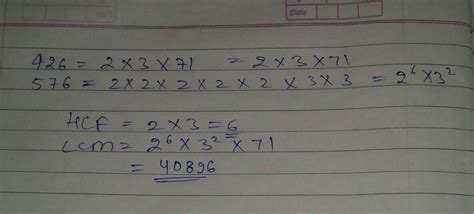 Date
426 = 2×3×71 = 2×3×71
576 = 2×2×2×2×2×3×3 = 2⁶×3²
HCF = 2×3 = 6
LCM = 2⁶×3²×71
= 40896